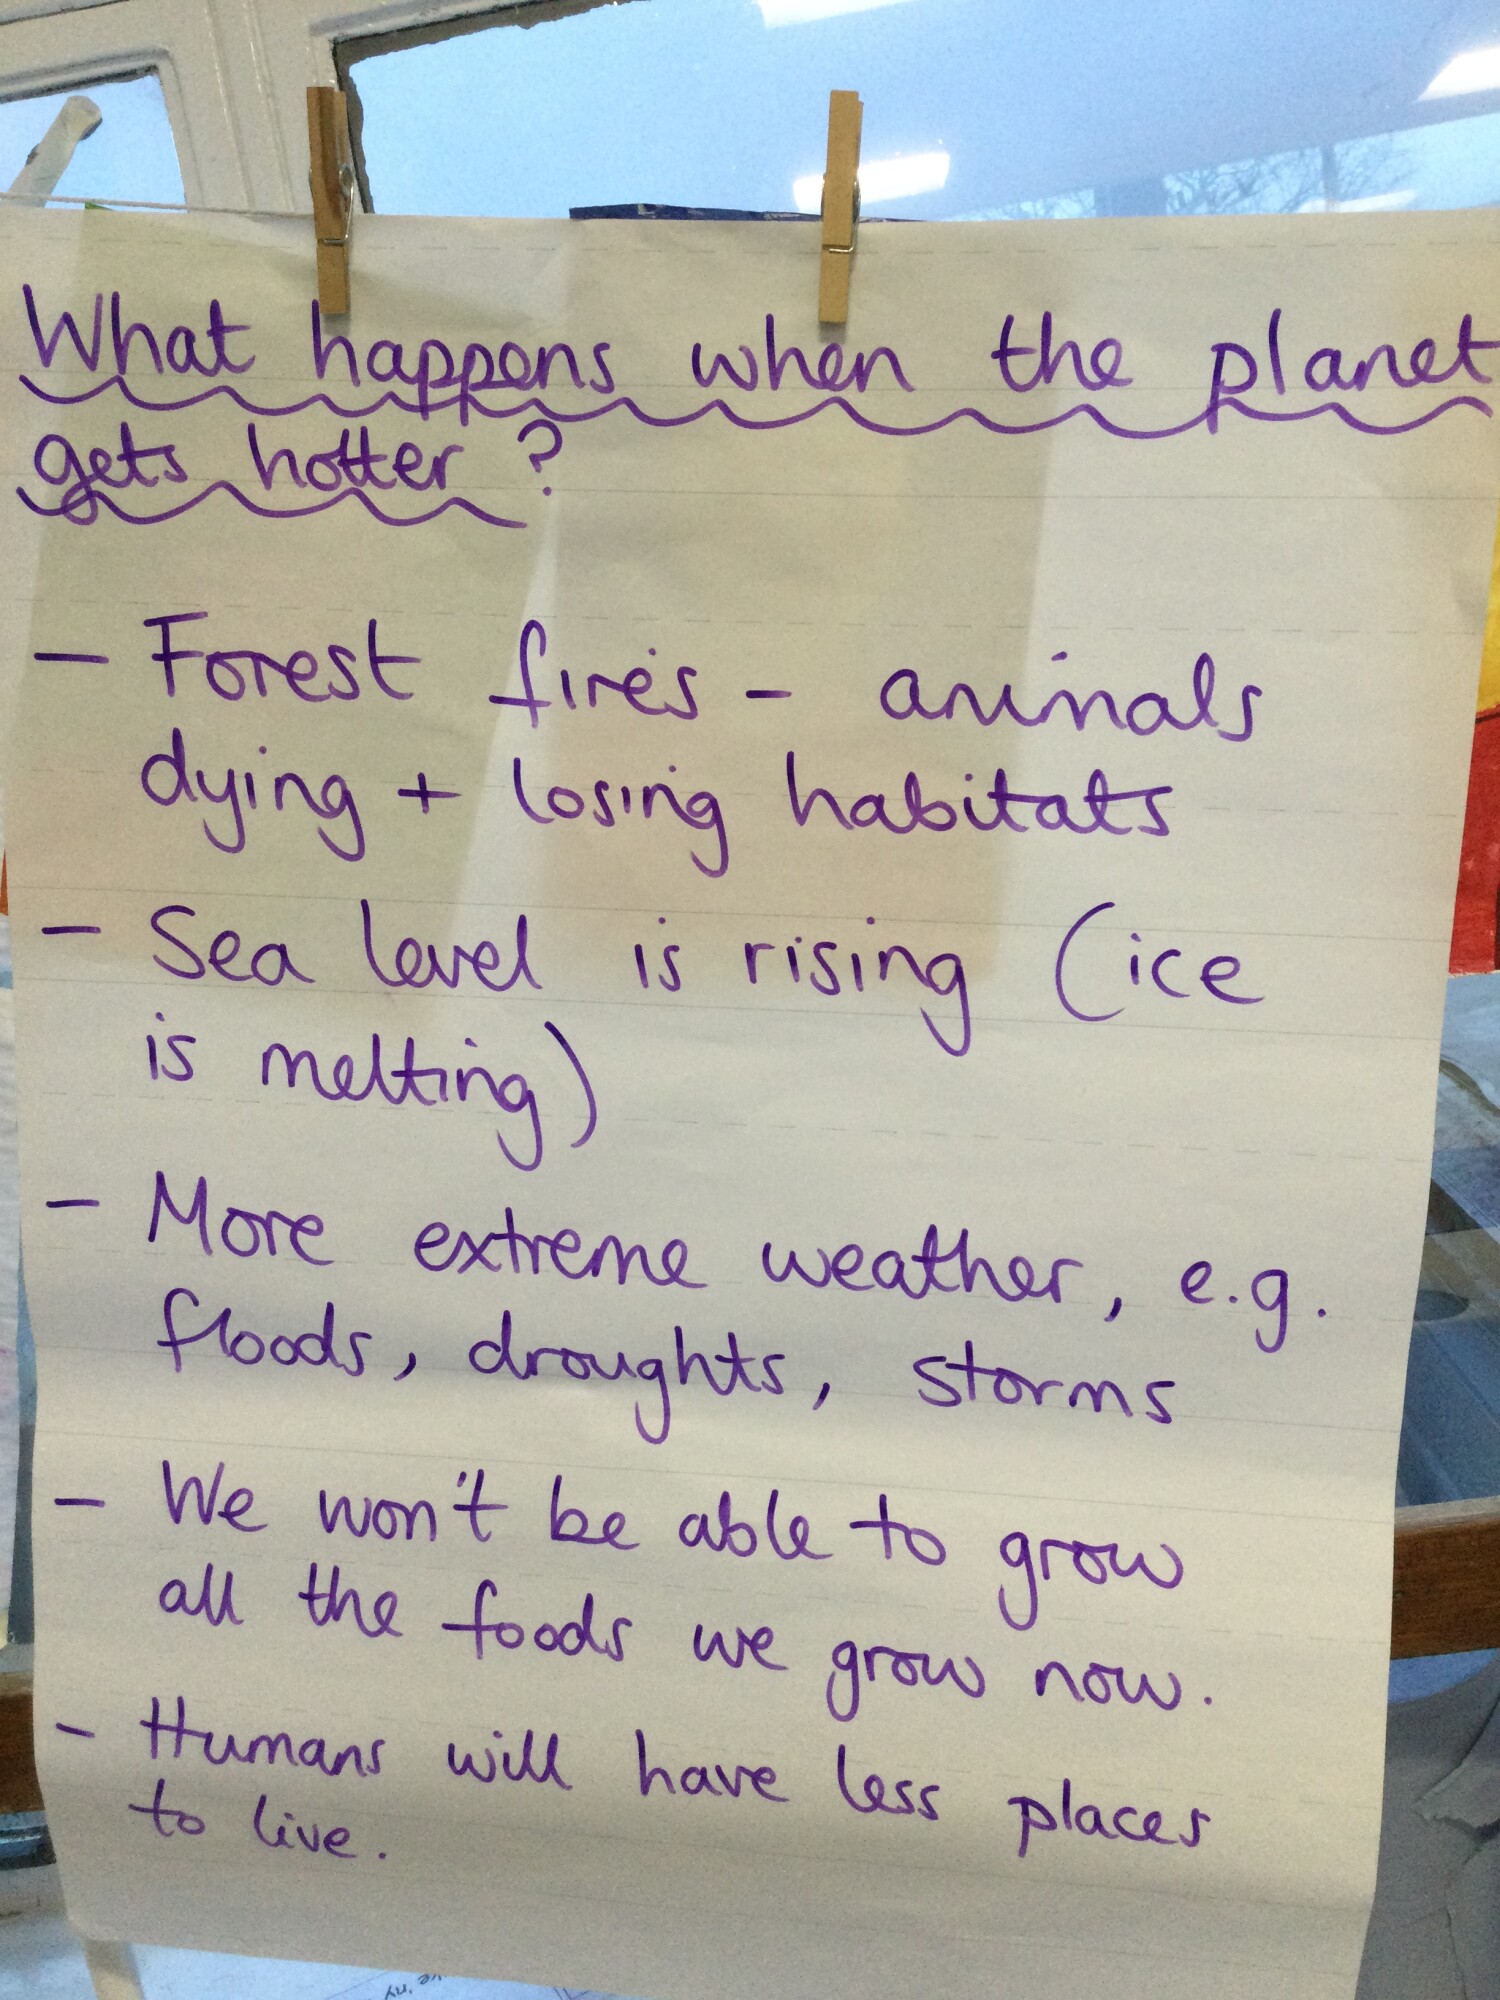 What happens when the planet
gets hotter ?
- Forest fires - animals
dying + losing habitats
- Sea level is rising (ice
is melting)
- More extreme weather, e.g.
floods, droughts, storms
- We won't be able to grow
all the foods we grow now.
- Humans will have less places
to live.